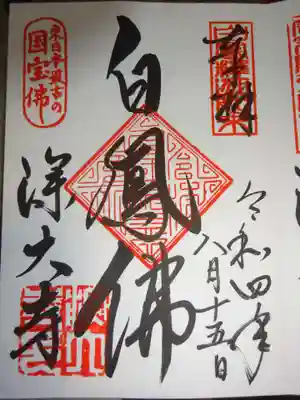 奉拝
令和四年
八月十五日
白鳳佛
深大寺
東日本最古の
国宝佛